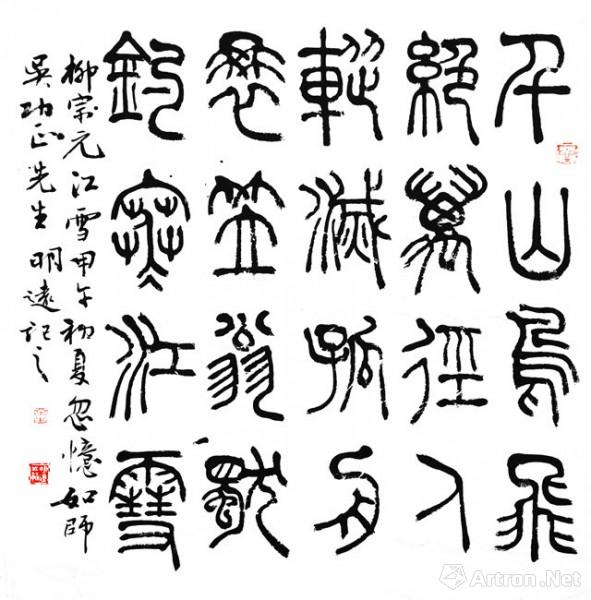 千山鳥飛
絕萬徑人
蹤滅孤舟
蓑笠翁獨
釣寒江雪
柳宗元江雪甲午初夏忽憶如師
吳功正先生明遠記之
Artron.Net